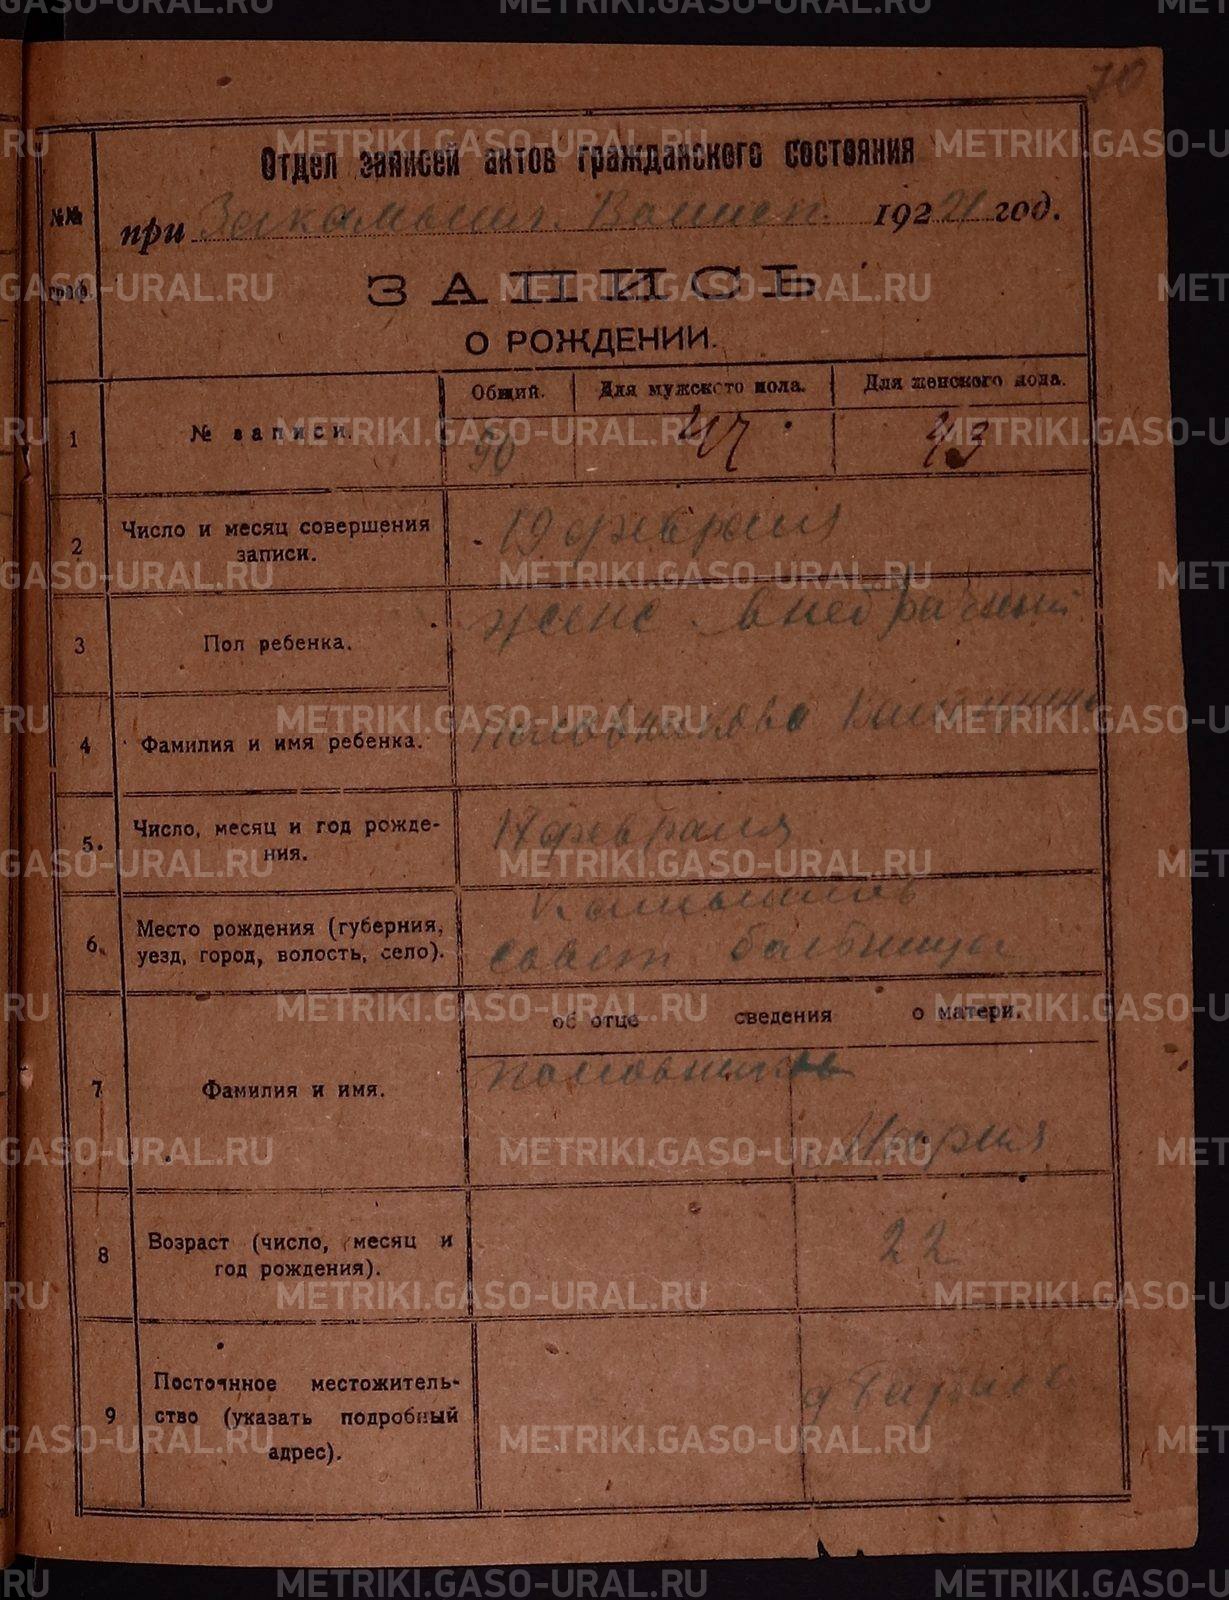 70
Отдел записей актов гражданского состояния
№№
граф.
при Закамышл. Волисп. 1924 год.
ЗАПИСЬ
О РОЖДЕНИИ.
Общий. Для мужского пола. Для женского пола.
1 № записи. 90 47 43
2 Число и месяц совершения
записи.
19 февраля
3 Пол ребенка.
женс внебрачный
4 Фамилия и имя ребенка.
Половникова
5. Число, месяц и год рожде-
ния.
17 февраля
6. Место рождения (губерния,
уезд, город, волость, село).
Камышлов
совет больница
об отце сведения о матери.
7 Фамилия и имя.
Половников
Мария
8 Возраст (число, месяц и
год рождения).
22
9 Постоянное местожитель-
ство (указать подробный
адрес).
д
METRIKI.GASO-URAL.RU